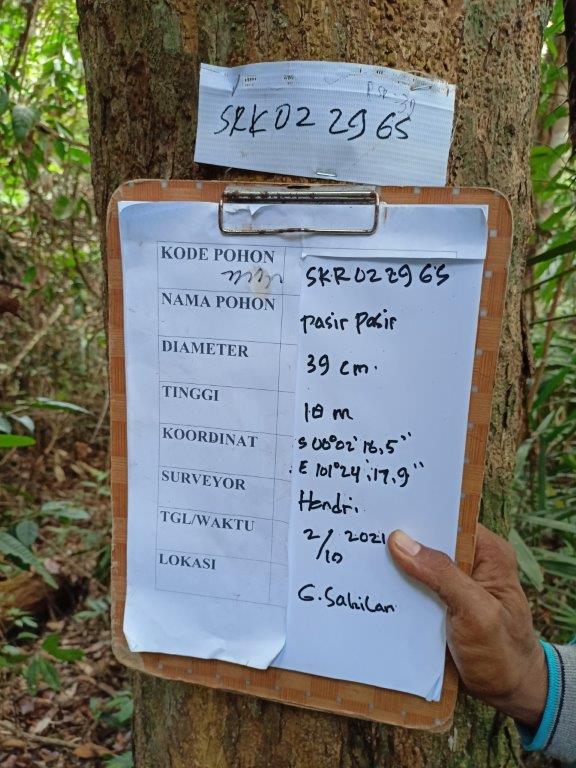 SRK02 2965
KODE POHON SKR022965
NAMA POHON pasir pasir
DIAMETER 39 cm.
TINGGI 18 m
KOORDINAT S 00°02' 16,5"
E 101°24'.17,9"
SURVEYOR Hendri.
TGL/WAKTU 2/10 2021
LOKASI G. Sahilan